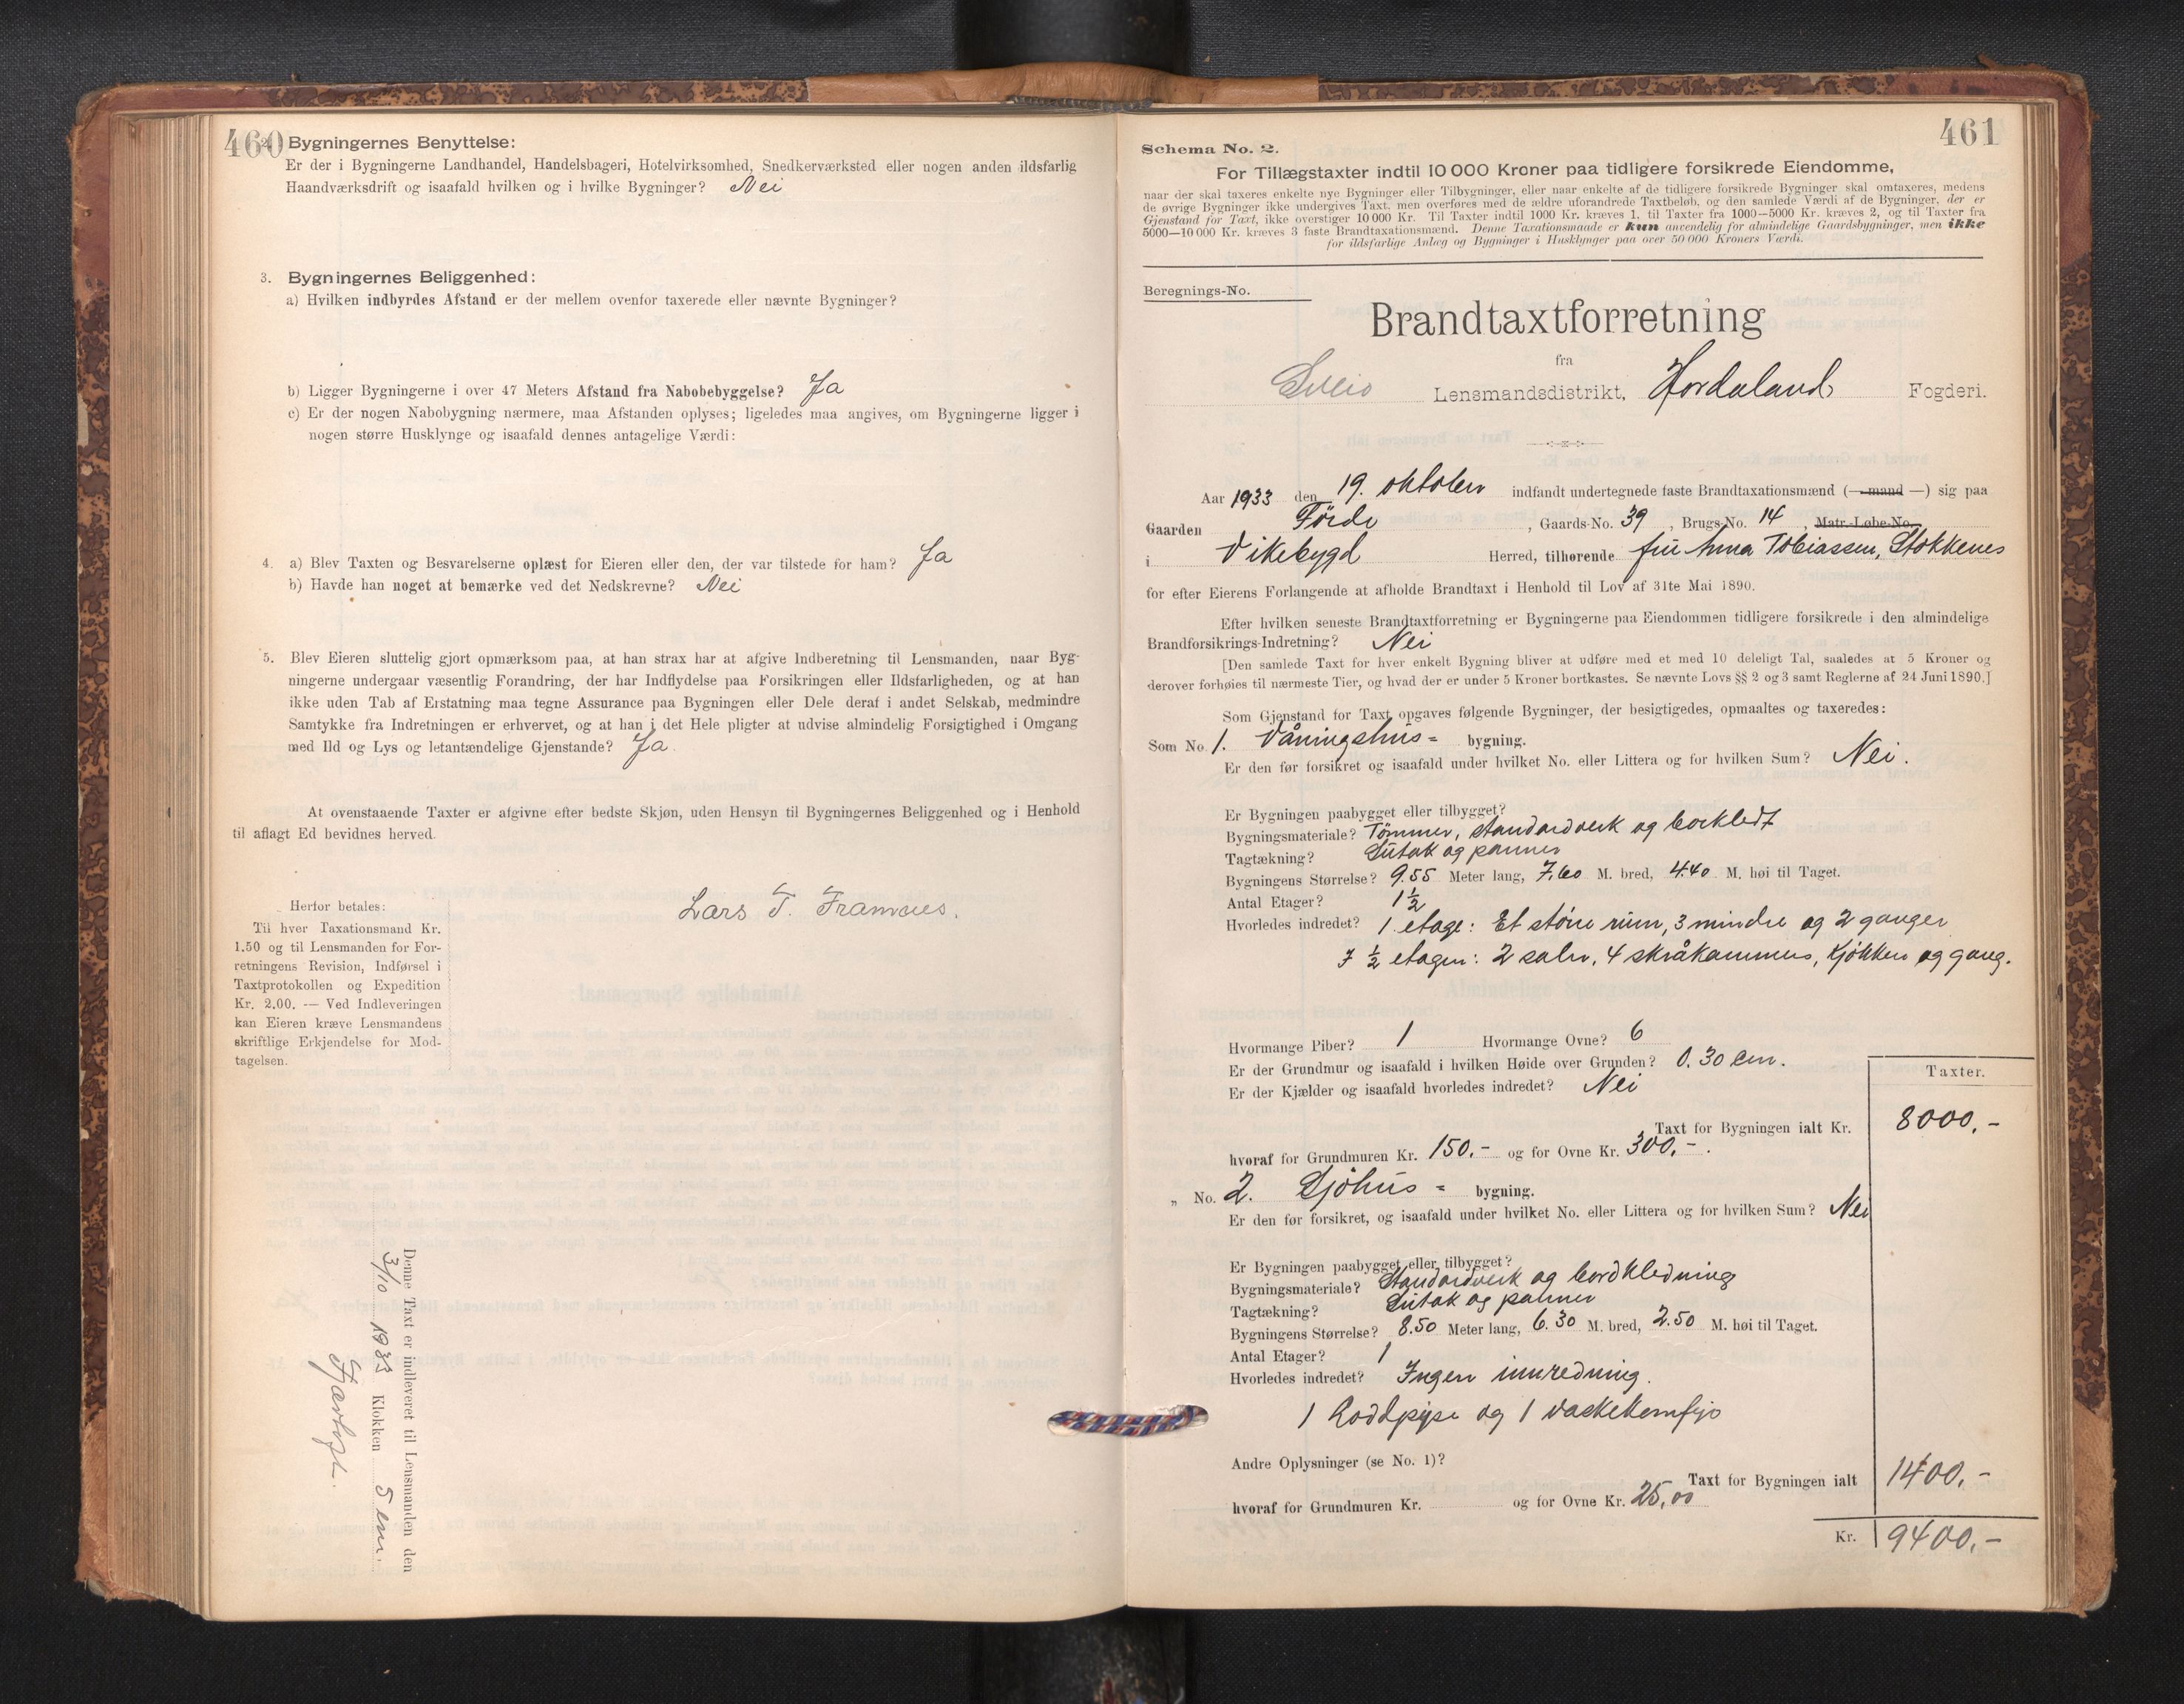 460
2. Bygningernes Benyttelse:
Er der i Bygningerne Landhandel, Handelsbageri, Hotelvirksomhed, Snedkerværksted eller nogen anden ildsfarlig
Haandværksdrift og isaafald hvilken og i hvilke Bygninger? Nei
3. Bygningernes Beliggenhed:
a) Hvilken indbyrdes Afstand er der mellem ovenfor taxerede eller nævnte Bygninger?
b) Ligger Bygningerne i over 47 Meters Afstand fra Nabobebyggelse? Ja
c) Er der nogen Nabobygning nærmere, maa Afstanden oplyses; ligeledes maa angives, om Bygningerne ligger i
nogen større Husklynge og isaafald dennes antagelige Værdi:
4. a) Blev Taxten og Besvarelserne oplæst for Eieren eller den, der var tilstede for ham? Ja
b) Havde han noget at bemærke ved det Nedskrevne? Nei
5. Blev Eieren sluttelig gjort opmærksom paa, at han strax har at afgive Indberetning til Lensmanden, naar Byg-
ningerne undergaar væsentlig Forandring, der har Indflydelse paa Forsikringen eller Ildsfarligheden, og at han
ikke uden Tab af Erstatning maa tegne Assurance paa Bygningen eller Dele deraf i andet Selskab, medmindre
Samtykke fra Indretningen er erhvervet, og at han i det Hele pligter at udvise almindelig Forsigtighed i Omgang
med Ild og Lys og letantændelige Gjenstande? Ja.
At ovenstaaende Taxter er afgivne efter bedste Skjøn, uden Hensyn til Bygningernes Beliggenhed og i Henhold
til aflagt Ed bevidnes herved.
Lars T. Framnes.
Herfor betales:
Til hver Taxationsmand Kr.
1.50 og til Lensmanden for For-
retningens Revision, Indførsel i
Taxtprotokollen og Expedition
Kr. 2.00. — Ved Indleveringen
kan Eieren kræve Lensmandens
skriftlige Erkjendelse for Mod-
tagelsen.
Denne Taxt er indleveret til Lensmanden den
3/10 1933 Klokken 5 em.
461
Schema No. 2.
For Tillægstaxter indtil 10 000 Kroner paa tidligere forsikrede Eiendomme,
naar der skal taxeres enkelte nye Bygninger eller Tilbygninger, eller naar enkelte af de tidligere forsikrede Bygninger skal omtaxeres, medens
de øvrige Bygninger ikke undergives Taxt, men overføres med de ældre uforandrede Taxtbeløb, og den samlede Værdi af de Bygninger, der er
Gjenstand for Taxt, ikke overstiger 10 000 Kr. Til Taxter indtil 1000 Kr. kræves 1, til Taxter fra 1000—5000 Kr. kræves 2, og til Taxter fra
5000—10 000 Kr. kræves 3 faste Brandtaxationsmænd. Denne Taxationsmaade er kun anvendelig for almindelige Gaardsbygninger, men ikke
for ildsfarlige Anlæg og Bygninger i Husklynger paa over 50 000 Kroners Værdi.
Beregnings-No.
Brandtaxtforretning
fra
Sveio Lensmandsdistrikt, Hordaland Fogderi.
Aar 1933 den 19. oktober indfandt undertegnede faste Brandtaxationsmænd (— mand —) sig paa
Gaarden Förde, Gaards-No. 39, Brugs-No. 14, Matr.-Løbe-No.
i Vikebygd Herred, tilhørende fru Anna Tobiassen, Stokkenes
for efter Eierens Forlangende at afholde Brandtaxt i Henhold til Lov af 31te Mai 1890.
Efter hvilken seneste Brandtaxtforretning er Bygningerne paa Eiendommen tidligere forsikrede i den almindelige
Brandforsikrings-Indretning? Nei
[Den samlede Taxt for hver enkelt Bygning bliver at udføre med et med 10 deleligt Tal, saaledes at 5 Kroner og
derover forhøies til nærmeste Tier, og hvad der er under 5 Kroner bortkastes. Se nævnte Lovs §§ 2 og 3 samt Reglerne af 24 Juni 1890.]
Som Gjenstand for Taxt opgaves følgende Bygninger, der besigtigedes, opmaaltes og taxeredes:
Som No 1. Våningshus= bygning.
Er den før forsikret og isaafald under hvilket No. eller Littera og for hvilken Sum? Nei.
Er Bygningen paabygget eller tilbygget?
Bygningsmateriale? Tømmer, standardverk og borkledt
Tagtækning? Sutak og panner
Bygningens Størrelse? 9.55 Meter lang, 7,60 M. bred, 4.40 M. høi til Taget.
Antal Etager? 1½
Hvorledes indredet? 1. etage: Et större rum, 3 mindre og 2 ganger
I ½ etagen: 2 saler, 4 skråkammers, kjökken og gang.
Hvormange Piber? 1 Hvormange Ovne? 6
Er der Grundmur og isaafald i hvilken Høide over Grunden? 0.30 cm.
Er der Kjælder og isaafald hvorledes indredet? Nei
Taxter.
Taxt for Bygningen ialt Kr. 8000,-
hvoraf for Grundmuren Kr. 150.- og for Ovne Kr. 300,-.
„ No. 2. Sjöhus= bygning.
Er den før forsikret, og isaafald under hvilket No. eller Littera og for hvilken Sum? Nei
Er Bygningen paabygget eller tilbygget?
Bygningsmateriale? Standardverk og bordkledning
Tagtækning? Sutak og panner
Bygningens Størrelse? 8.50 Meter lang, 6.30 M. bred, 2.50 M. høi til Taget.
Antal Etager? 1
Hvorledes indredet? Ingen innredning.
1 og 1
Andre Oplysninger (se No. 1)?
Taxt for Bygningen ialt 1400,-
hvoraf for Grundmuren Kr. og for Ovne Kr. 25,00
Kr. 9400,-